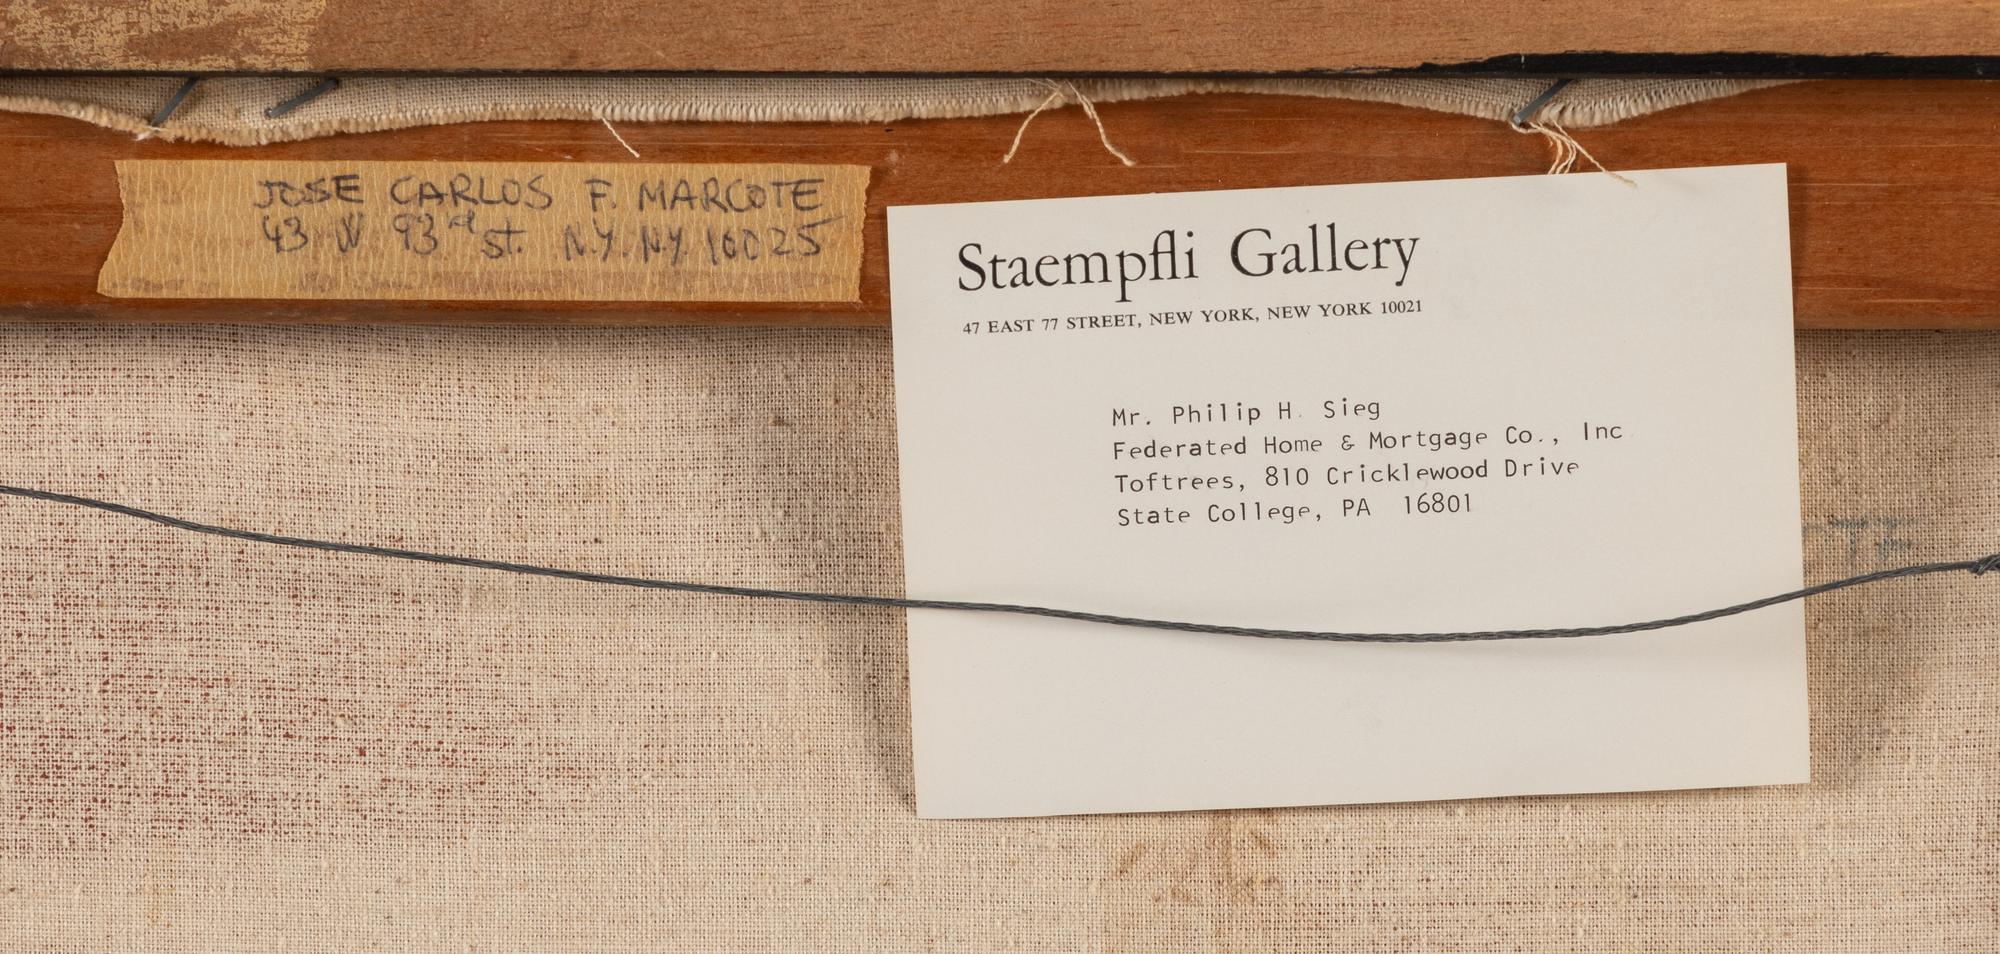 JOSE CARLOS F. MARCOTE
43 W 93rd st. N.Y. N.Y. 10025
Staempfli Gallery
47 EAST 77 STREET, NEW YORK, NEW YORK 10021
Mr. Philip H. Sieg
Federated Home & Mortgage Co., Inc
Toftrees, 810 Cricklewood Drive
State College, PA 16801